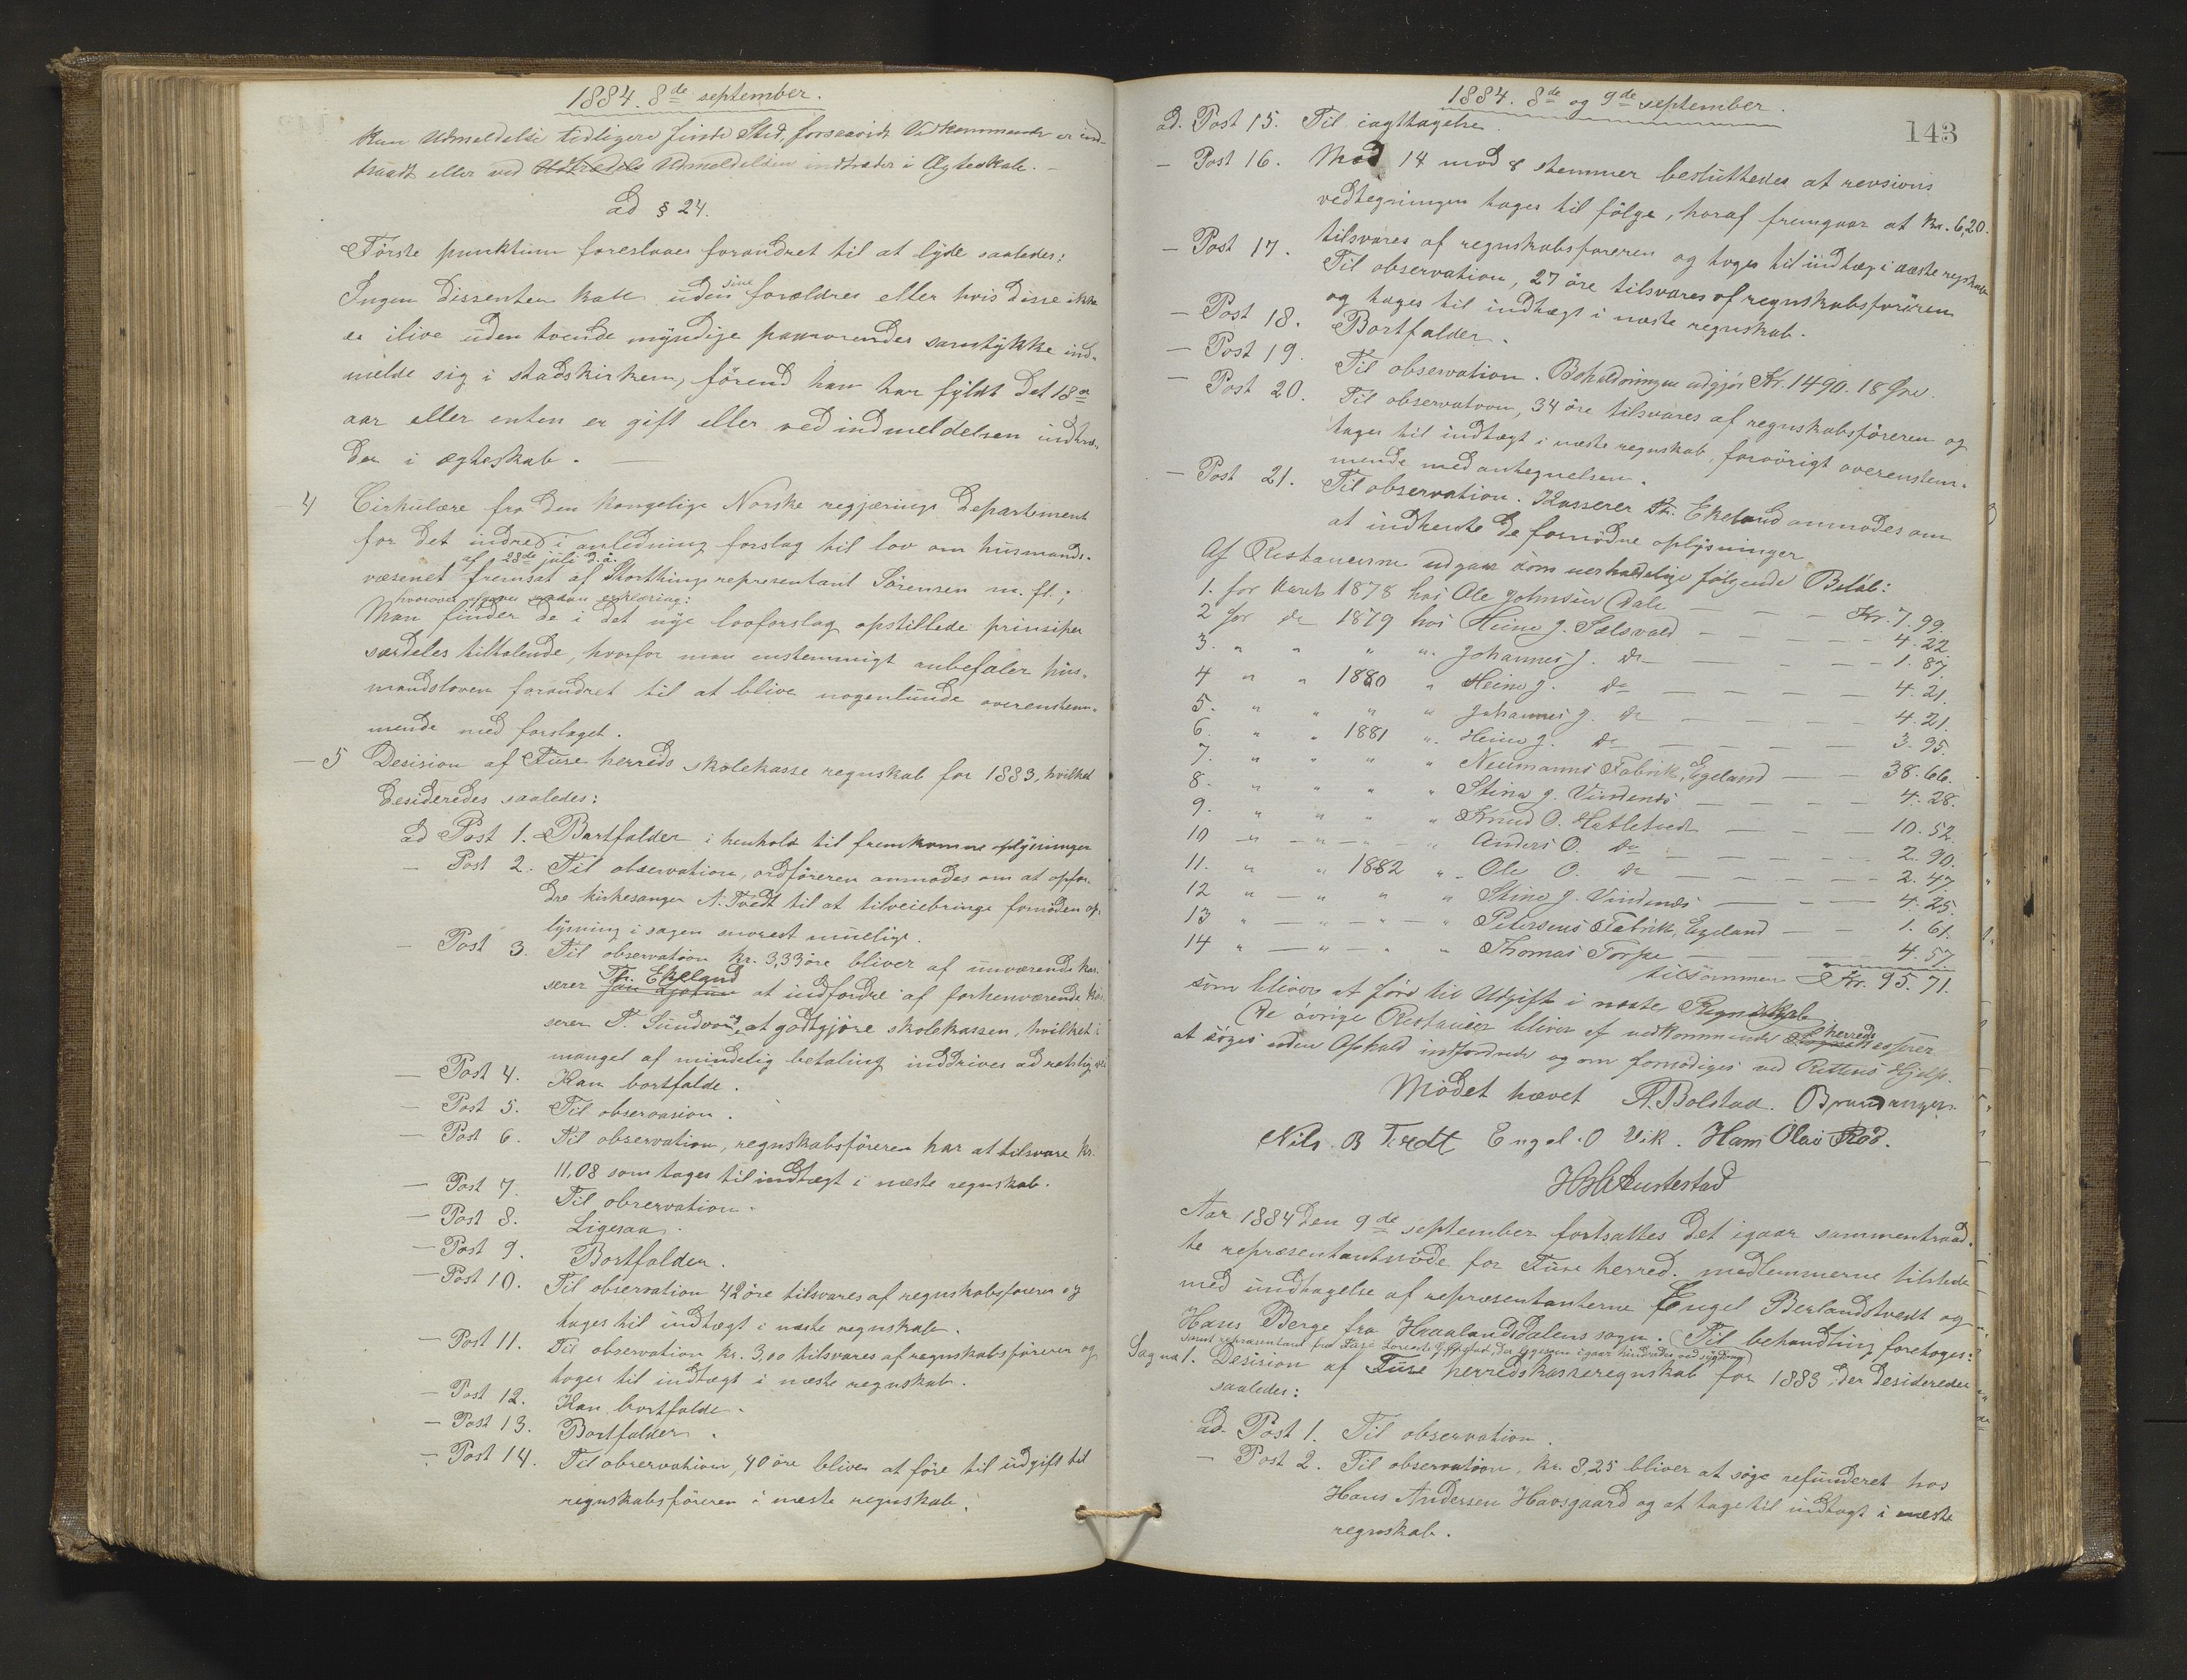 1884. 8de september.
kun Udmeldelse tidligere finde Sted, forsaavidt Vedkommende er ind-
traadt eller ved Udmeldelsen indtræder i Ægteskab. –
ad § 24.
Første punktum foreslaaes forandret til at lyde saaledes:
Ingen dissenter kan uden sine forældres eller hvis disse ikke
er ilive uden tvende myndige paarørendes samtykke ind-
melde sig i stadskirken, førend han har fyldt det 18de
aar eller enten er gift eller ved indmeldelsen indtræ-
der i ægteskab. —
4 Cirkulære fra den kongelige Norske regjerings departement
for det indre i anledning forslag til lov om husmands-
af 28de juli d.å.
væsenet fremsat af Storthingsrepresentant Sørensen m. fl.;
hvorover afgaves saadan erklæring:
Man finder de i det nye lovforslag opstillede prinsiper
særdeles tiltalende, hvorfor man enstemmigt anbefaler hus-
mandsloven forandret til at blive nogenlunde overenstem-
mende med forslaget.
– 5 Desision af Fuse herreds skolekasse regnskab for 1883, hvilket
desideredes saaledes:
ad Post 1. Bortfalder i henhold til fremkomne oplysninger
– Post 2. Til observation, ordføreren anmodes om at opfor-
dre kirkesanger N. Tvedt til at tilveiebringe fornøden op-
lysning i sagen snarest muelig.
– Post 3. Til observation kr. 3,33 øre bliver af nuværende kas-
serer Th. Ekeland at indfordre af forhenværende kas-
serer T. Sundvor, at godtgjøre skolekassen, hvilket i
mangel af mindelig betaling inddrives ad retslig vei
– Post 4. Kan bortfalde.
– Post 5. Til observasion.
– Post 6. Til observation, regnskabsføreren har at tilsvare kr.
11,08 som tages til indtægt i næste regnskab.
– Post 7. Til observation.
– Post 8. Ligesaa.
– Post 9. Bortfalder.
– Post 10. Til observation 42 øre tilsvares af regnskabsføreren og
tages til indtægt i næste regnskab.
– Post 11. Til observation kr. 3,00 tilsvares af regnskabsføreren og
tages til indtægt i næste regnskab.
– Post 12. Kan bortfalde.
– Post 13. Bortfalder.
– Post 14. Til observation, 40 øre bliver at føre til udgift til
regnskabsføreren i næste regnskab.
1884. 8de og 9de september.
143
ad. Post 15. Til iagttagelse.
– Post 16. Mod 14 mod 8 stemmer besluttedes at revsions
vedtegningen tages til følge, horaf fremgaar at kr. 6,20.
tilsvares af regnskabsføreren og tages til indtægt i næste regnskab
– Post 17. Til observation, 27 øre tilsvares af regnskabsføreren
og tages til indtægt i næste regnskab.
– Post 18. Bortfalder.
– Post 19. Til observation. Beholdningen udgjør Kr. 1490. 18 Øre.
– Post 20. Til observation, 34 øre tilsvares af regnskabsføreren og
tages til indtægt i næste regnskab, forøvrigt overenstem-
mende med antegnelsen.
– Post 21. Til observation. Kasserer Th. Ekeland anmodes om
at indhente de fornødne oplysninger
Af Restancerne udgaar som uerholdelige følgende Beløb:
1. for Aaret 1878 hos Ole Johnsen Dale — — — Kr. 7.99.
2 for do 1879 hos Heine J. Sælsvold — — — 4.22.
3. " " " " Johannes J. do — — — 1.87.
4 " " 1880 " Heine J. do — — — 4.21.
5. " " " " Johannes J. do — — — 4.21.
6. " " 1881 " Heine J. do — — — 3.95.
7. " " " " Neumanns Fabrik, Egeland — — 38.66.
8. " " " " Stine J. Vindenes — — — 4.28.
9. " " " " Knud O. Hatletvedt — — — 10.52.
10 " " " " Anders O. do — — — 2.90.
11. " " 1882 " Ole O. do — — — 2.47.
12 " " " " Stine J. Vindenes — — — 4.25.
13 " " " " Petersens Fabrik, Egeland — — 1.61.
14 " " " " Thomas Torpe — — — 4.57.
tilsammen Kr. 95.71.
som bliver at føre til Udgift i næste Regnskab
De øvrige Restancer bliver af vedkommende herreds Kasserer
at søges uden Ophold indfordrede og om fornødiges ved Rettens Hjelp.
Mødet hævet R. Bolstad.
Nils. B Tvedt Engel. O Vik. Hans Olai Røe.
Aar 1884 den 9de september fortsattes det igaar sammentraad-
te repræsentantmøde for Fuse herred. medlemmerne tilstede
med undtagelse af repræsentanterne Engel Berlandstvedt og
Hans Berge fra Haalandsdalens sogn. Til behandling foretoges:
samt repræsentant fra Fuse der ligesom igaar hindredes ved sygdom)
Sag no 1. Desision af Fuse herredskasseregnskab for 1883, der desideredes
saaledes:
ad. Post 1. Til observation.
– Post 2. Til observation, kr. 8,25 bliver at søge refunderet hos
Hans Andersen Havsgaard og at tage til indtægt i næste
regnskab.